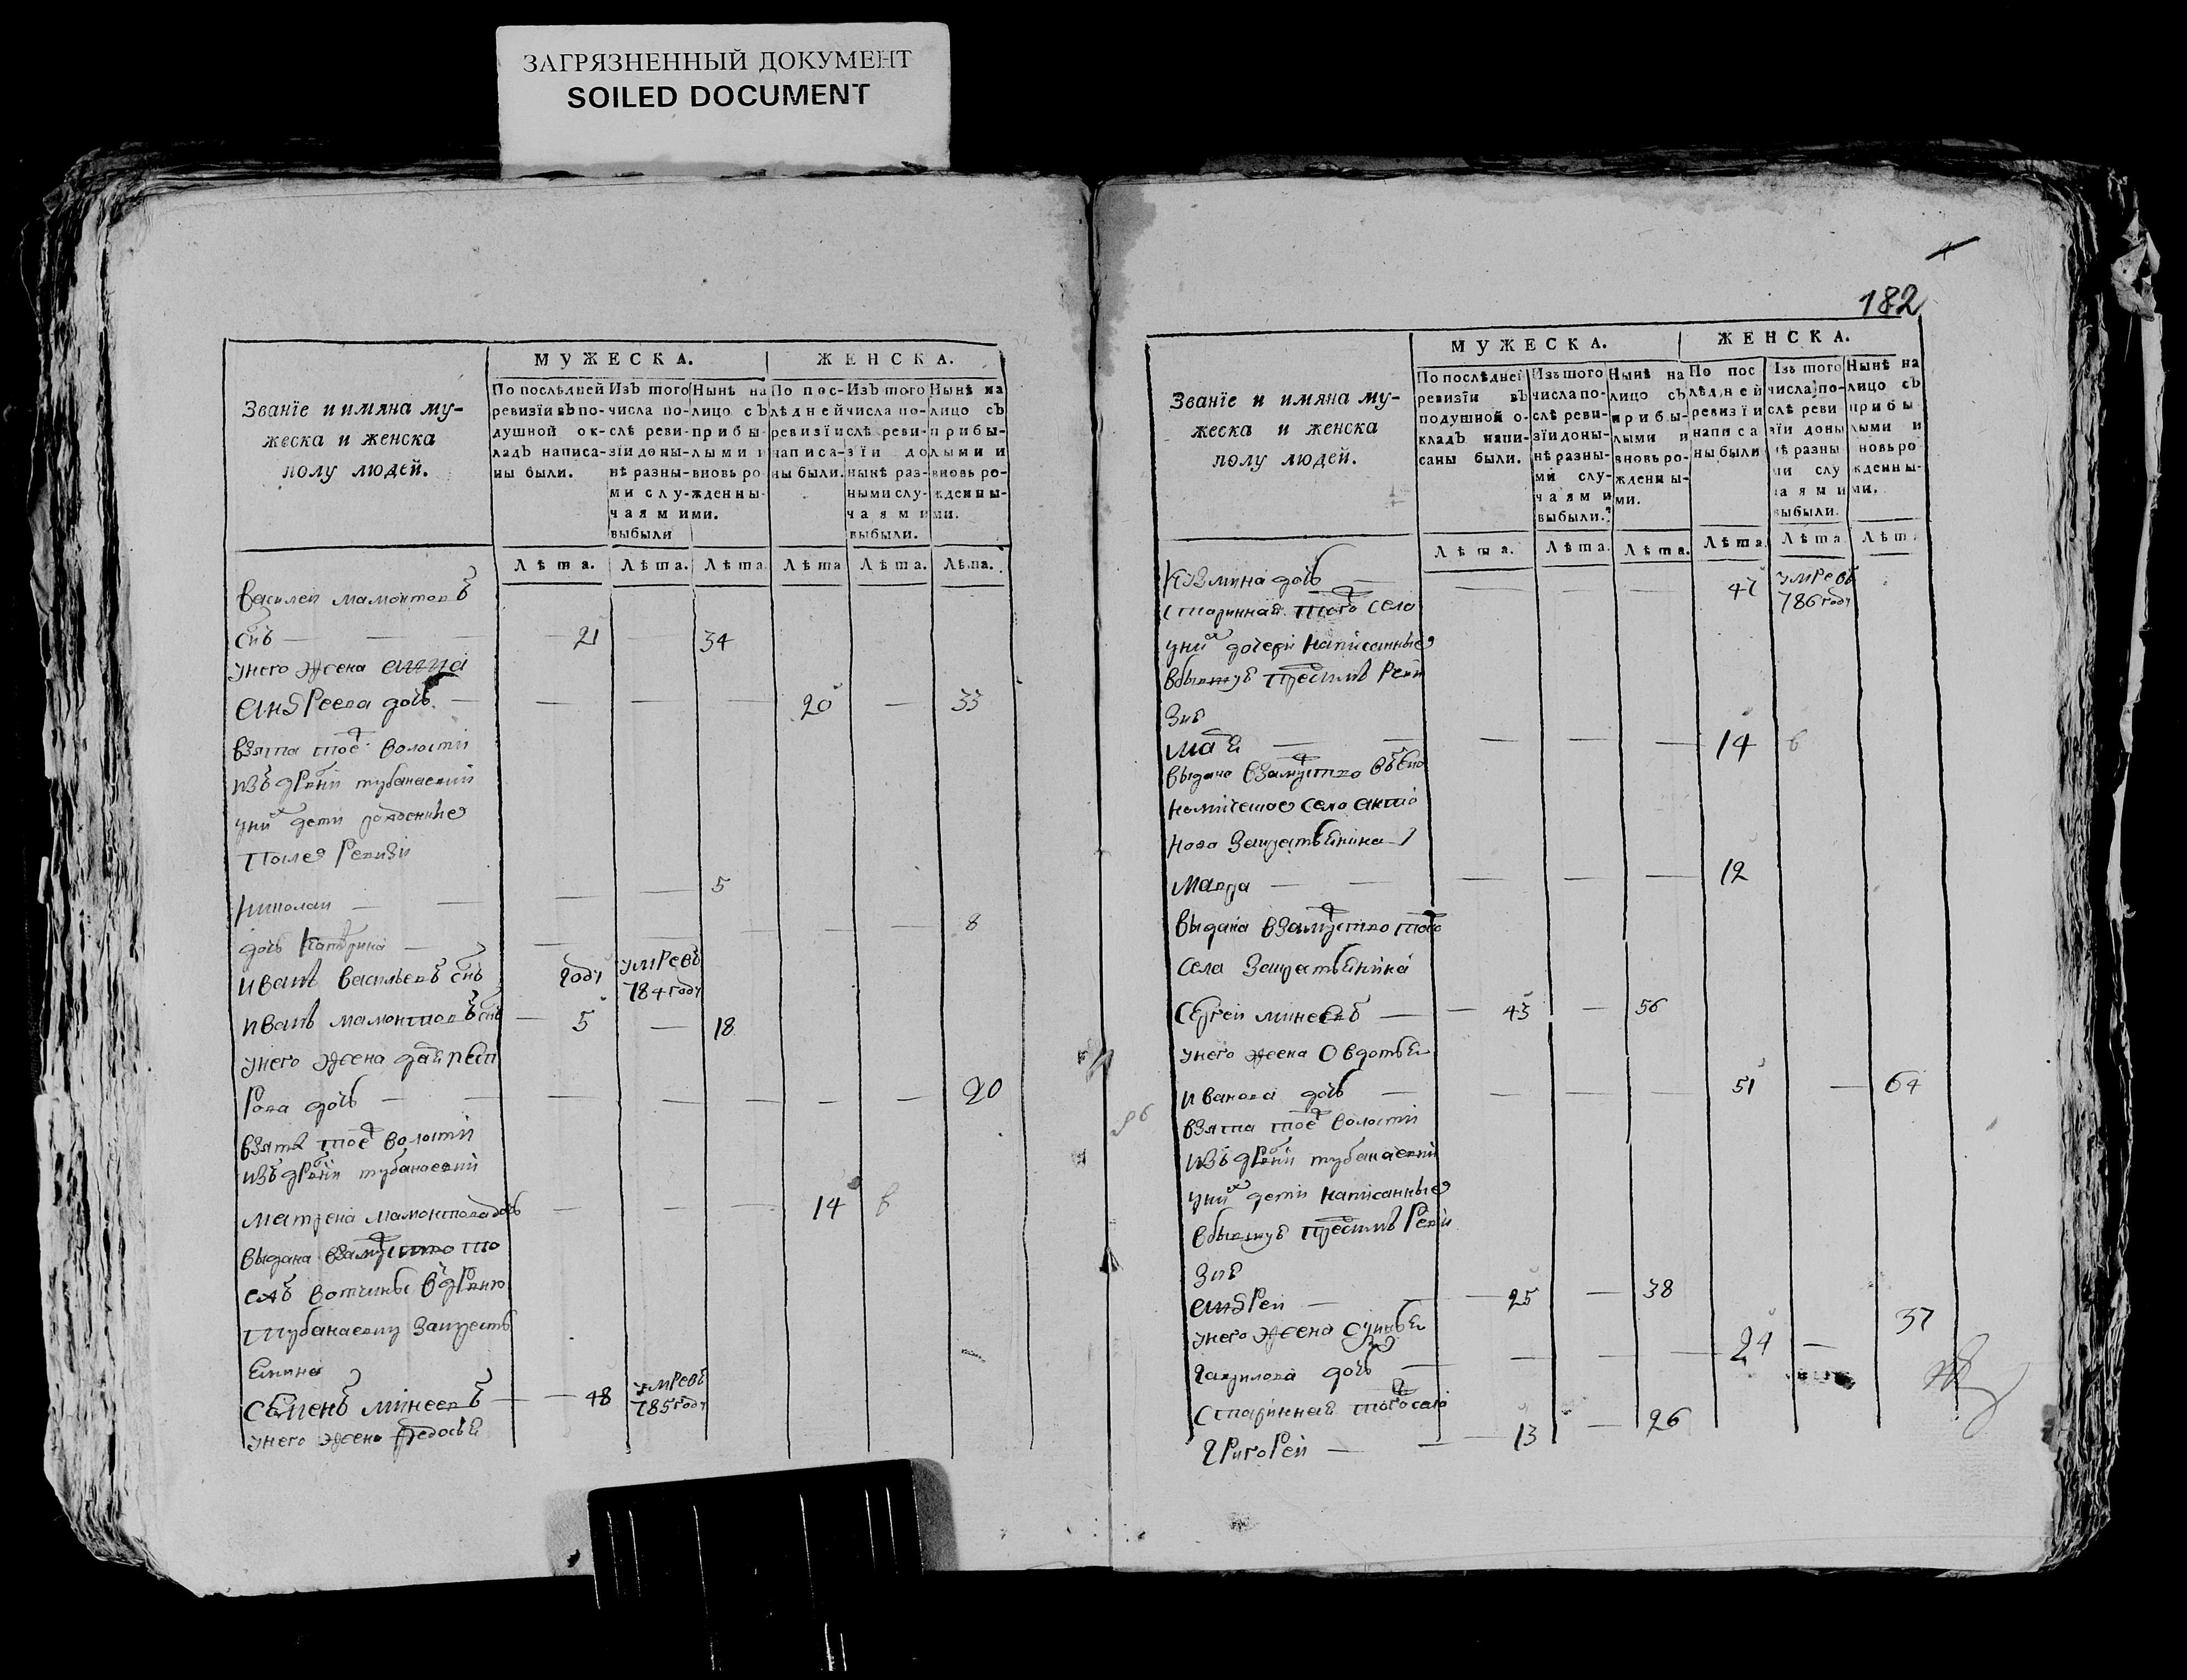 ЗАГРЯЗНЕННЫЙ ДОКУМЕНТ
SOILED DOCUMENT
Званїе и имяна му-
жеска и женска
полу людей.
МУЖЕСКА.
ЖЕНСКА.
По послѣдней
ревизїи въ по-
душной ок-
ладъ написа-
ны были.
Изъ того
числа по-
слѣ реви-
зїи до ны-
нѣ разны-
ми слу-
чаями
выбыли
Нынѣ на
лицо съ
прибы-
лыми и
вновь ро-
жденны-
ми.
По пос-
лѣдней
ревизїи
написа-
ны были.
Изъ того
числа по-
слѣ реви-
зїи до
нынѣ раз-
ными слу-
чаями
выбыли.
Нынѣ на
лицо съ
прибы-
лыми и
вновь ро-
жденны-
ми.
Лѣта. Лѣта. Лѣта. Лѣта Лѣта. Лѣта.
Василеи мамонтовъ
снъ — 21 — 34
унего жена анна
андреева дочь — — — — 20 — 33
взята тое волости
изъ дрвни тубанаевки
уних дети рожденные
после ревизи
николаи — — — 5
дочь катерина — — — — — 8
иванъ васильевъ снъ году умревъ
784 году
иванъ мамонтовъ снъ — 5 — 18
унего жена
рова дочь — — — — — — 20
взята тое волости
изъ дрвни тубанаевки
матрена мамонтова дочь — — — 14 в
выдана взамуство то
вотчины в дрвню
тубанаевку
семенъ минеевъ — 48 умревъ
785 году
унего жена федосья
182
Званїе и имяна му-
жеска и женска
полу людей.
МУЖЕСКА.
ЖЕНСКА.
По послѣдней
ревизїи въ
подушной о-
кладъ напи-
саны были.
Изъ того
числа по-
слѣ реви-
зїи до ны-
нѣ разны-
ми слу-
чаями
выбыли.
Нынѣ на
лицо съ
прибы-
лыми и
вновь ро-
жденны-
ми.
По пос
лѣдней
ревизїи
написа
ны были
Изъ того
числа по-
слѣ реви
зїи доны
нѣ разны
ми слу
чаями
выбыли.
Нынѣ на
лицо съ
прибы
лыми и
вновь ро
жденны-
ми.
Лѣта. Лѣта. Лѣта. Лѣта Лѣта Лѣт.
кузмина дочь — — — — 47 умревъ
786 году
старинная того села
уних дочери написанные
вбывшую пред сим реви
зию
— — — — 14 в
выдана взамуство
село
мавра — — — — — 12
выдана взамуство того
села
Сергеи минеевъ — — 43 — 56
унего жена Овдотья
иванова дочь — — — — 51 — 64
взята тое волости
изъ дрвни тубанаевки
уних дети написанные
вбывшую пред сим реви
зию
андреи — — 25 — 38
унего жена 37
гаврилова дочь — — — — 24 —
старинная того села
григореи — — 13 — 26